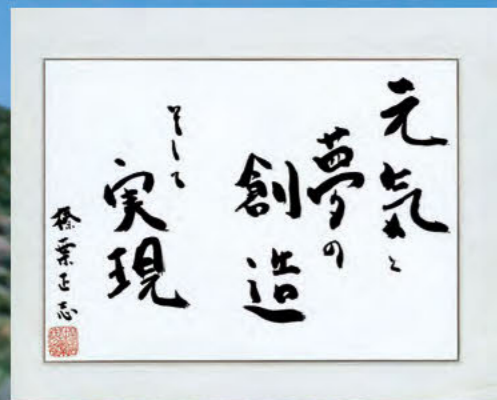 元気と
夢の
創造
そして
実現
榛葉正志